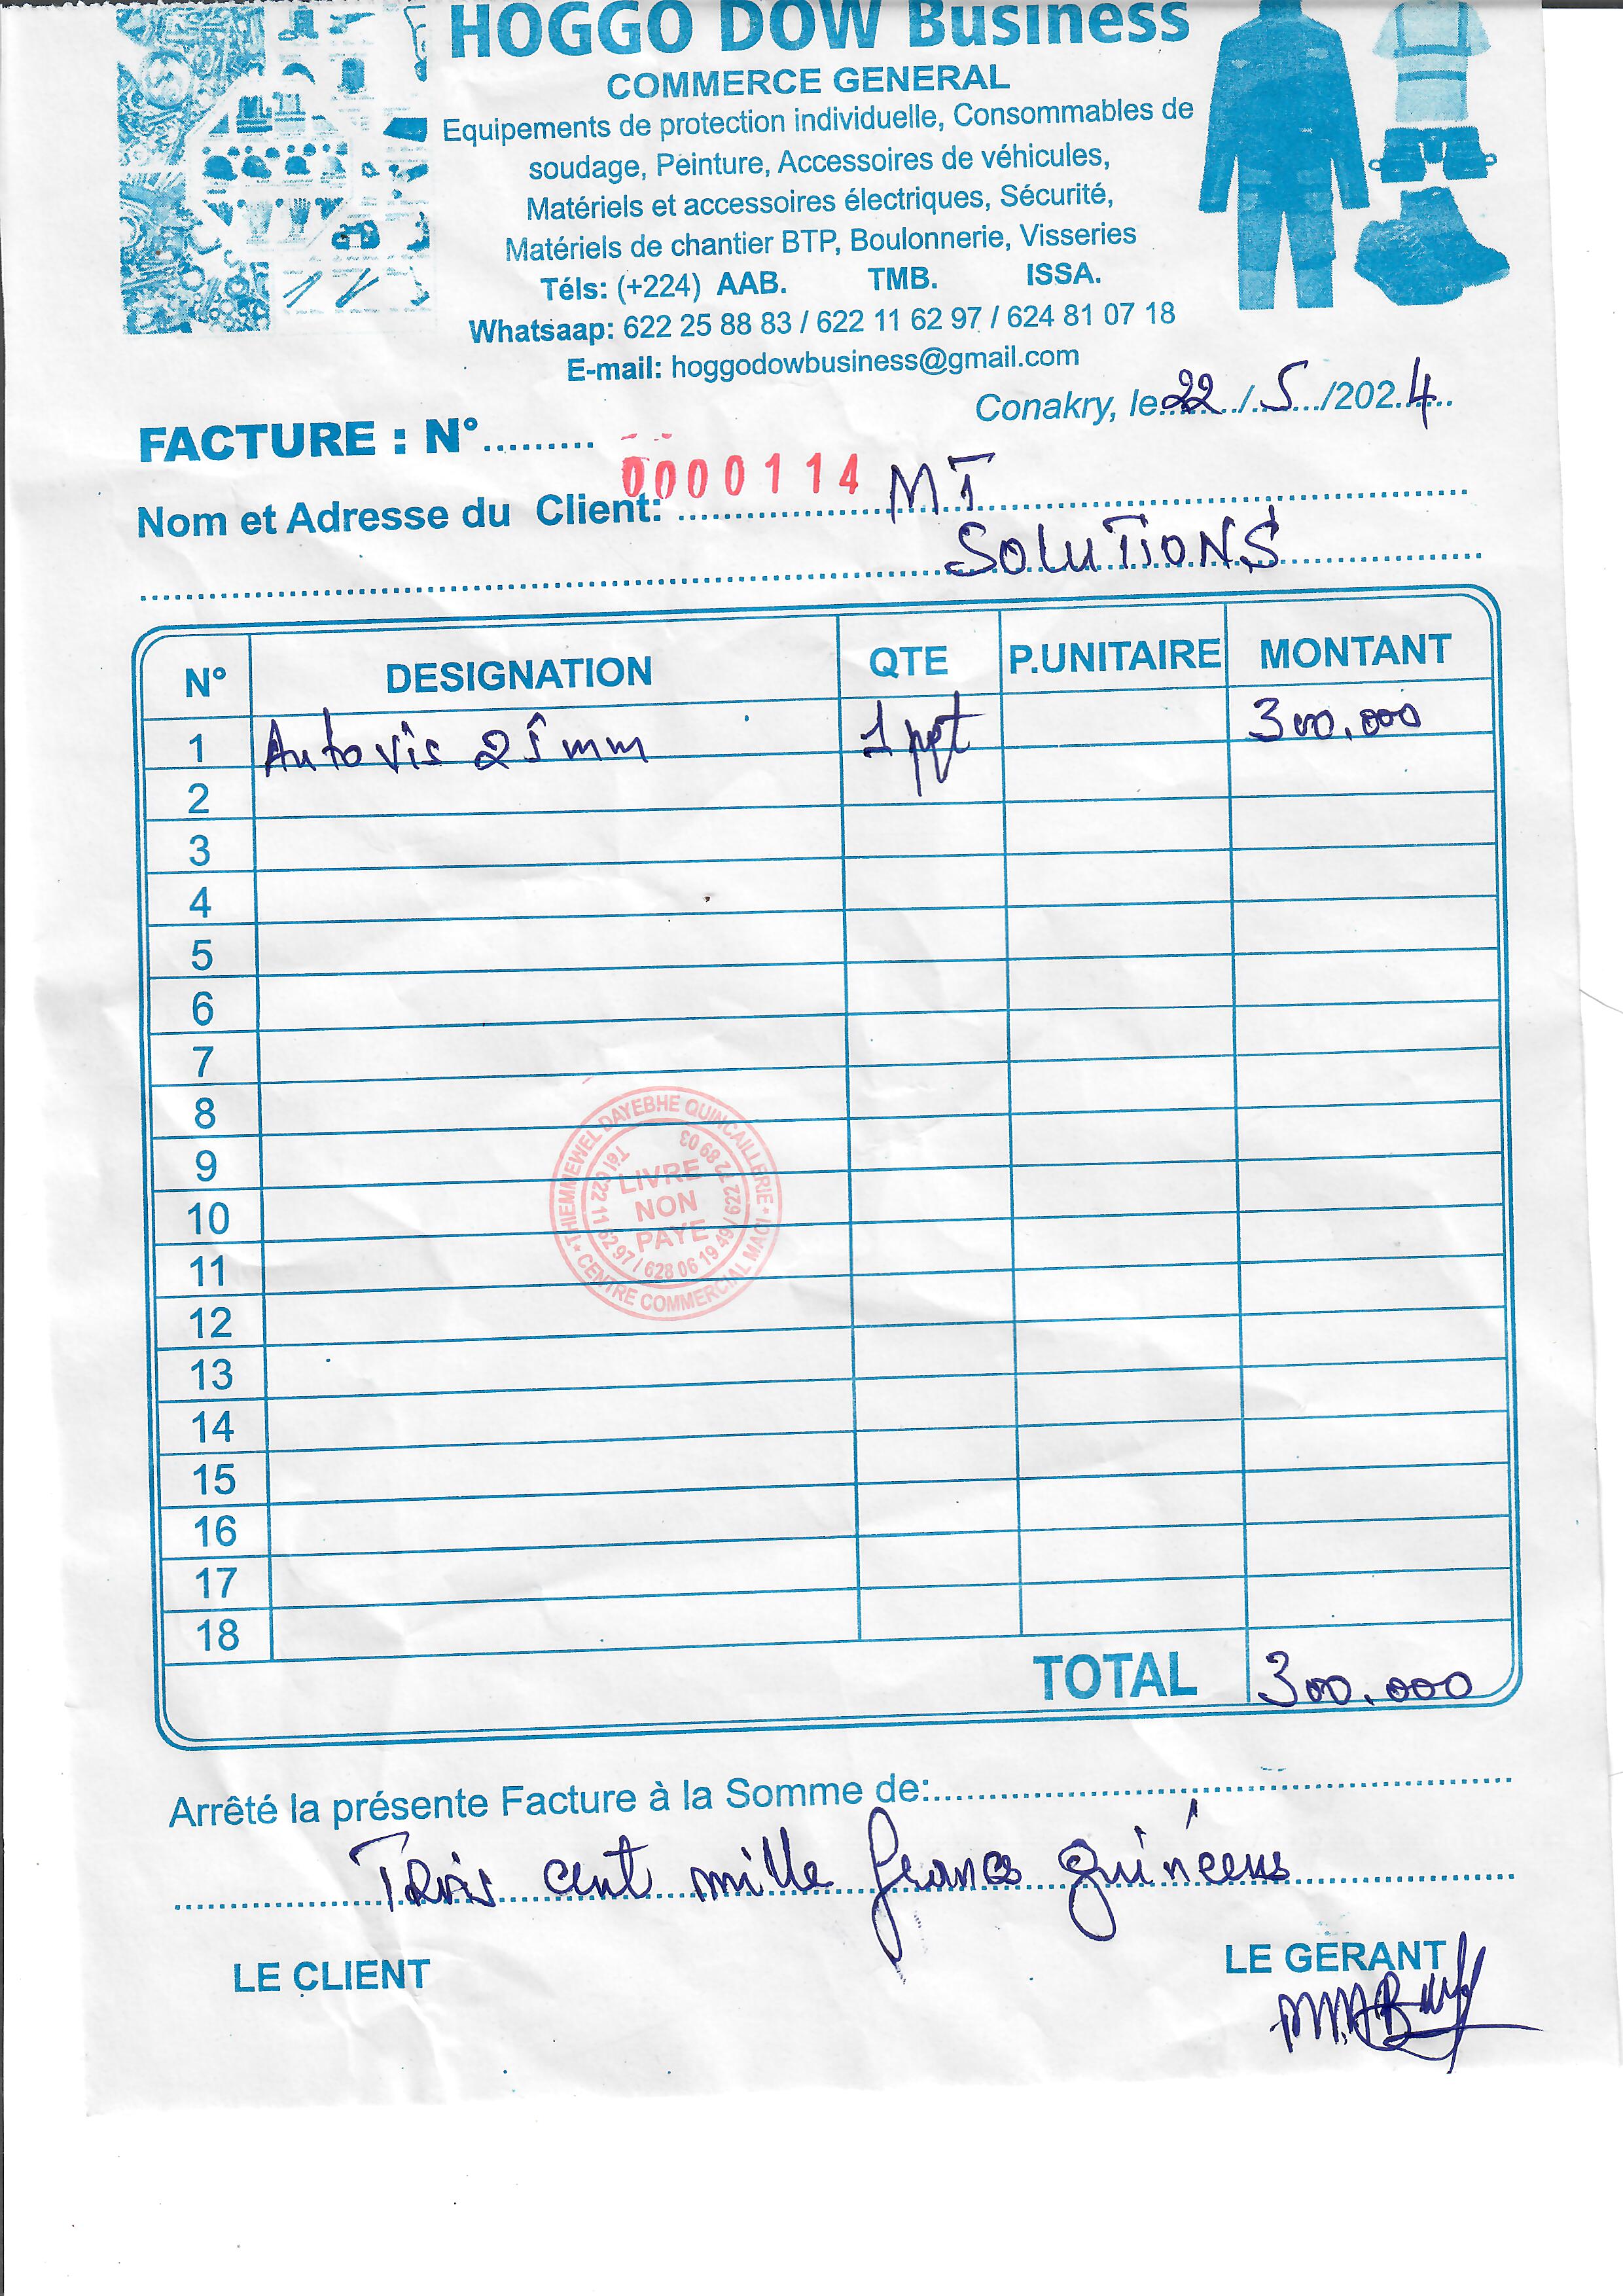 HOGGO DOW Business
COMMERCE GENERAL
Equipements de protection individuelle, Consommables de
soudage, Peinture, Accessoires de véhicules,
Matériels et accessoires électriques, Sécurité,
Matériels de chantier BTP, Boulonnerie, Visseries
Téls: (+224) AAB. TMB. ISSA.
Whatsaap: 622 25 88 83 / 622 11 62 97 / 624 81 07 18
E-mail: hoggodowbusiness@gmail.com
Conakry, le 22 / 5 /2024
FACTURE : N°.........
0000114
Nom et Adresse du Client: MT
SOLUTIONS
N° DESIGNATION QTE P.UNITAIRE MONTANT
1 Auto vis 25 mm 1 pqt 300.000
2
3
4
5
6
7
8
9
10
11
12
13
14
15
16
17
18
THIEMMEWEL DAYEBHE QUINCAILLERIE
Tél 622 11 62 97 / 628 06 19 49 / 622 22 89 03
LIVRE
NON
PAYE
* CENTRE COMMERCIAL MACI *
TOTAL 300.000
Arrêté la présente Facture à la Somme de:
Trois cent mille francs guinéens
LE CLIENT LE GERANT